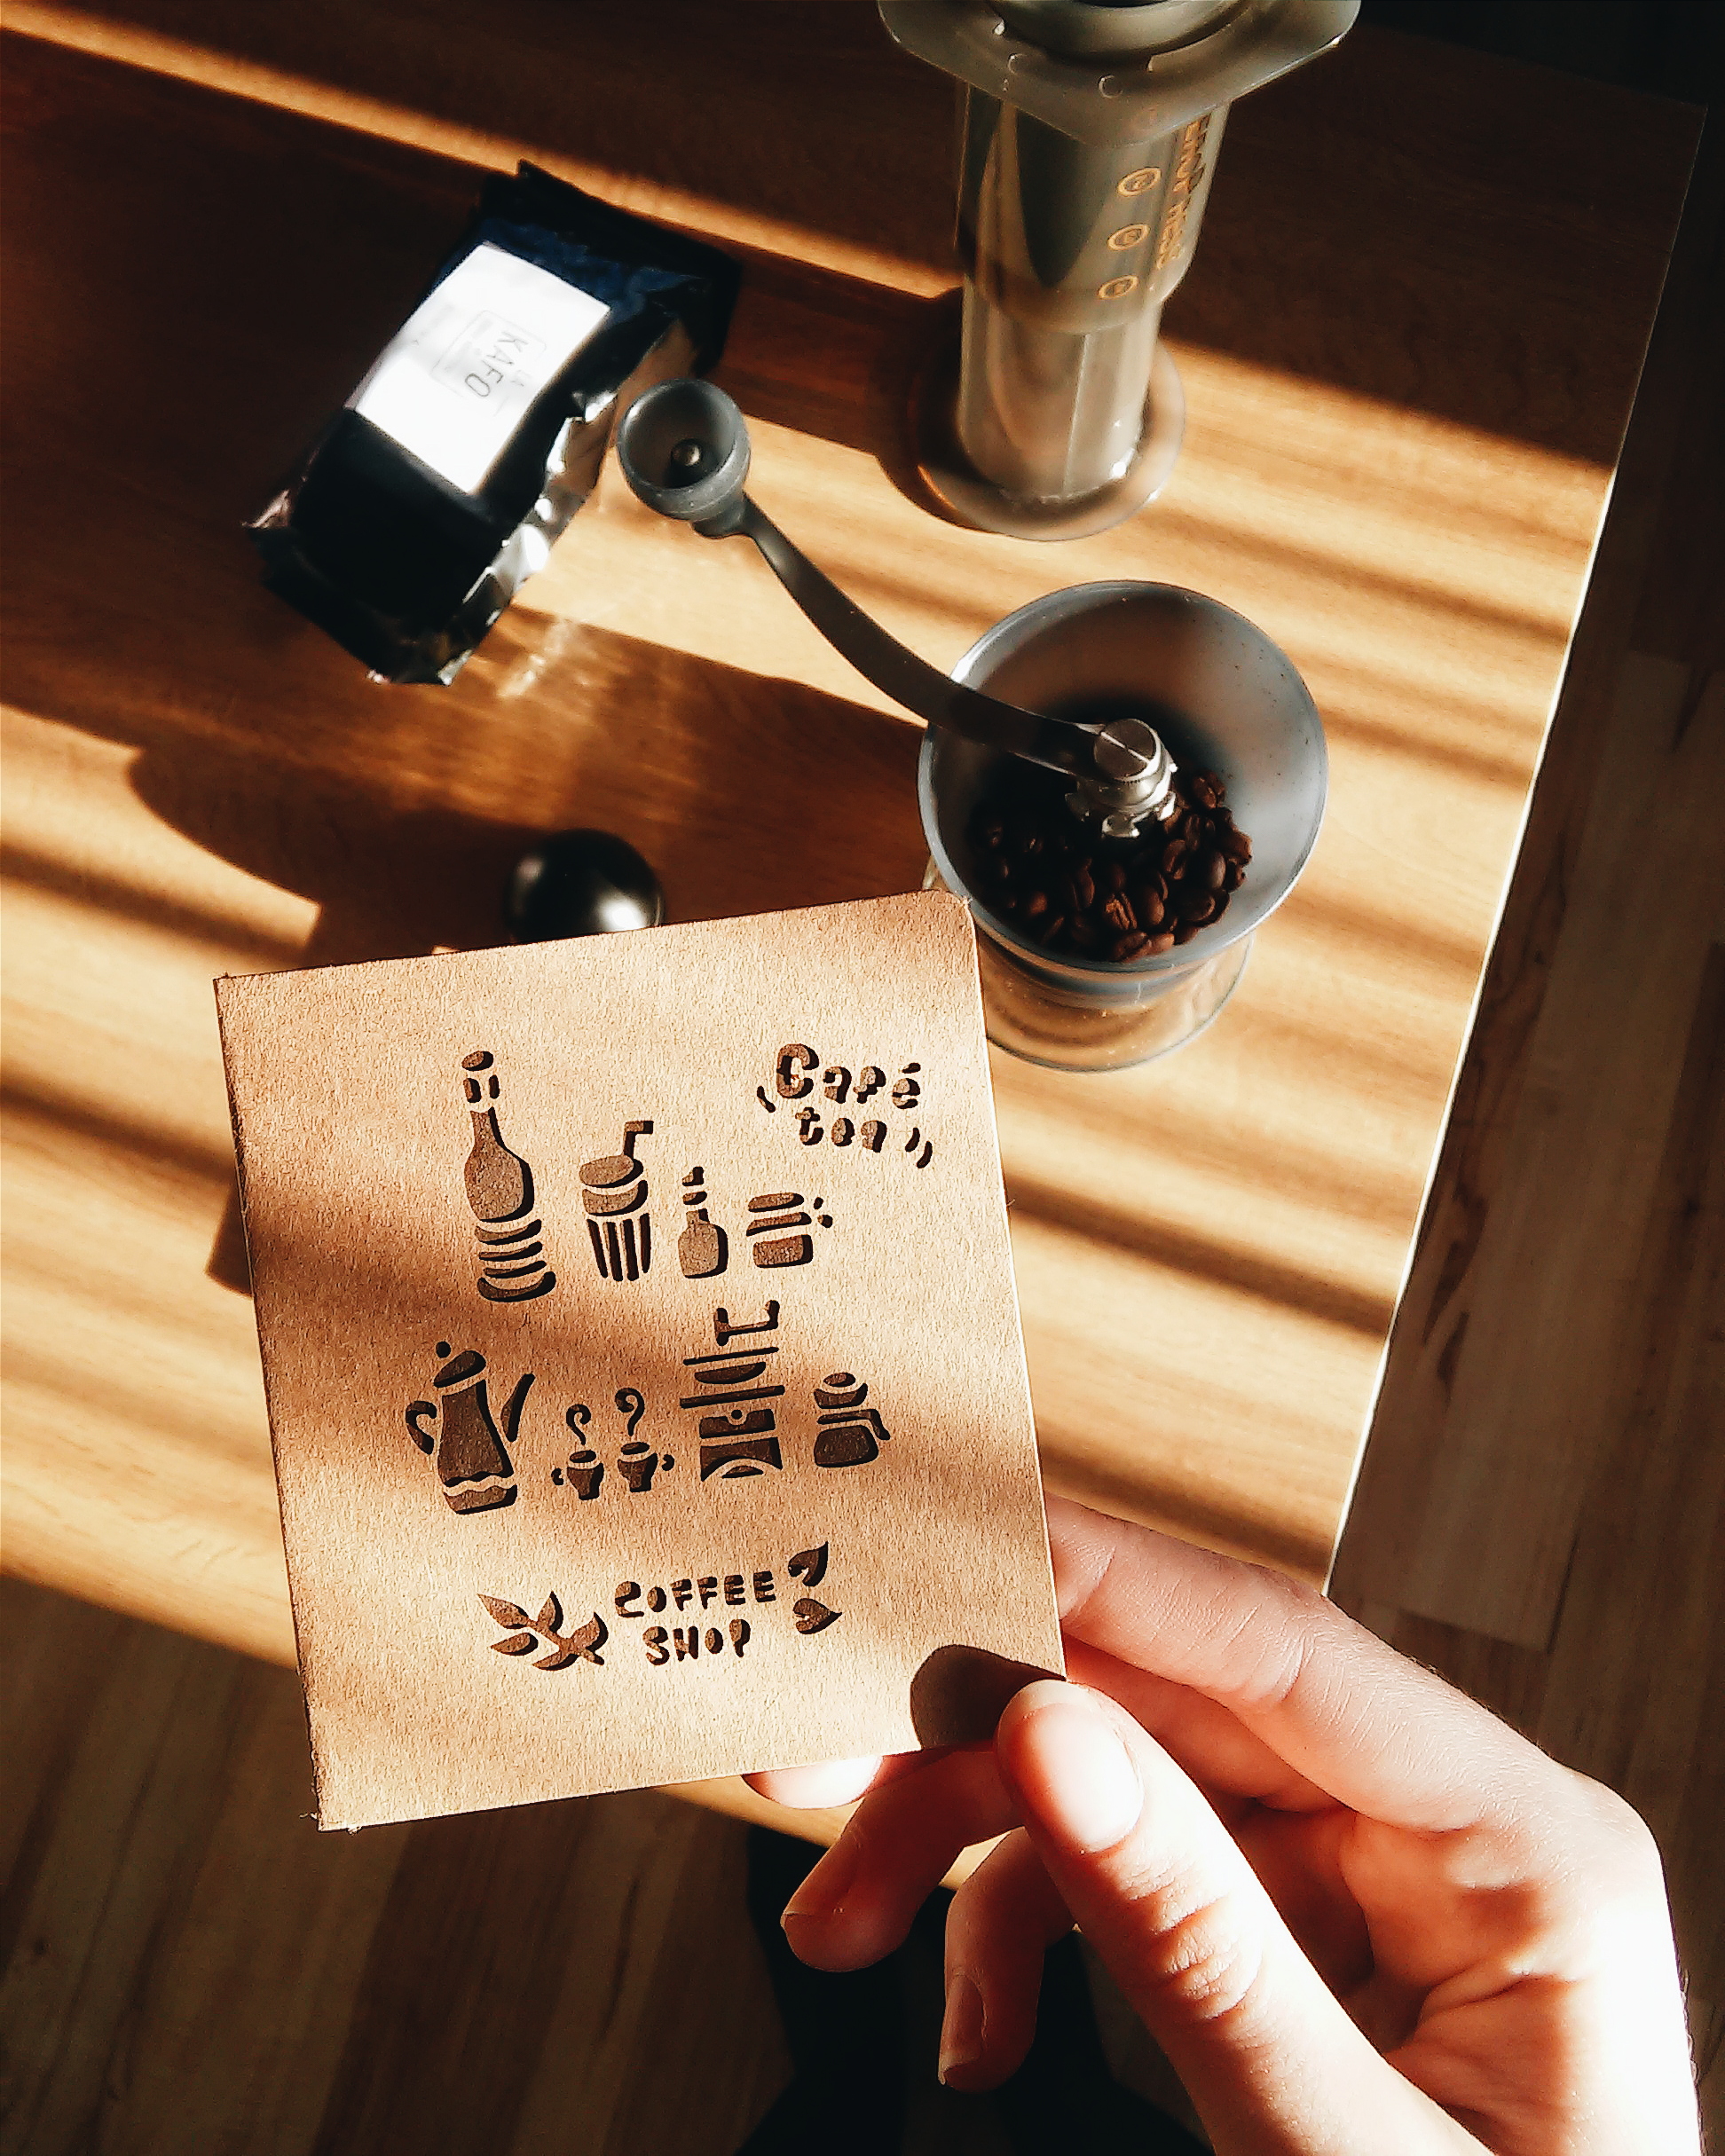 KAFO
Café
tea
COFFEE
SHOP